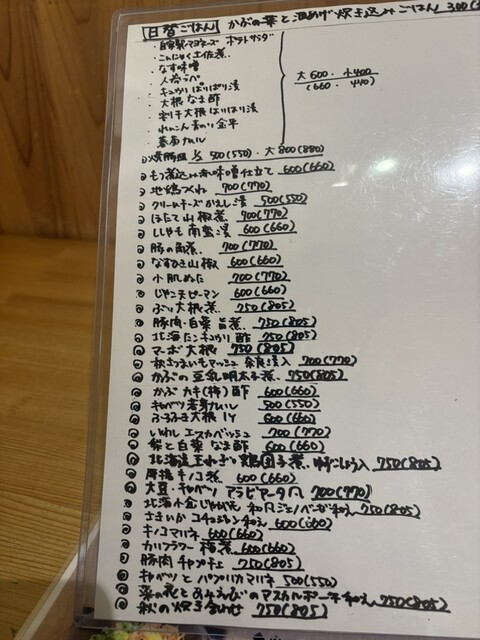 日替ごはん かぶの葉と油あげ炊き込みごはん 300
・自家製マヨネーズ ポテトサラダ
・こんにゃく土佐煮.
・なす味噌
・人参ラペ
・キュウリ ぱりぱり漬
・大根 なま酢
・割干大根 はりはり漬
・れんこん 青のり 金平
・春雨カレー
大600. 小400
(660 . 440)
1/2 500(550)・大 800(880)
もつ煮込み 赤味噌仕立て 600(660)
地鶏つくね 700(770)
クリームチーズ かえし漬 500(550)
ほたて 山椒煮. 700(770)
ししゃも 南蛮漬 600(660)
豚の角煮. 700(770)
なすひき山椒 600(660)
小肌ぬた 700(770)
じゃこ天ピーマン 600(660)
ぶり大根煮. 750(805)
豚肉・白菜 旨煮. 750(805)
北海ダコキュウリ 酢 750(805)
マーボ大根 750(805)
秋さつまいもマッシュ 奈良漬入 700(770)
かぶの豆乳明太子煮. 750(805)
かぶ カキ(柿) 酢 600(660)
キャベツ 春雨カレー 500(550)
ふろふき大根 600(660)
いわし エスカベッシュ 700(770)
梨と白菜 なま酢 600(660)
北海道玉ねぎと 鶏団子煮. ゆずこしょう入 750(805)
厚揚キノコ煮 600(660)
大豆・キャベツ アラビアータ風 700(770)
北海小金じゃがいも 和風ジェノベーゼ和え 750(805)
さきいか コチュジャン和え 600(660)
キノコマリネ 600(660)
カリフラワー 梅煮 600(660)
豚肉 チャプチェ 750(805)
キャベツと パプリカマリネ 500(550)
菜の花とあまえびのマスカルポーネ和え 750(805)
秋の炊き合わせ 750(805)